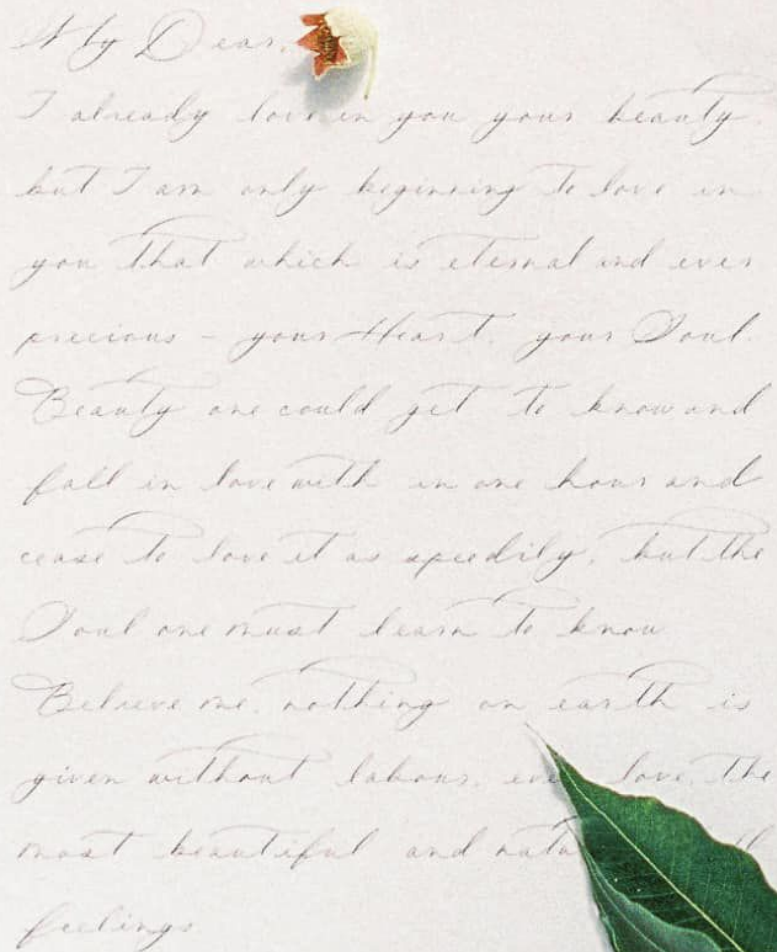 My Dear,
I already love in you your beauty,
but I am only beginning to love in
you that which is eternal and ever
precious - your Heart, your Soul.
Beauty one could get to know and
fall in love with in one hour and
cease to love it as speedily, but the
Soul one must learn to know
Believe me, nothing on earth is
given without labour, even love, the
most beautiful and
feelings